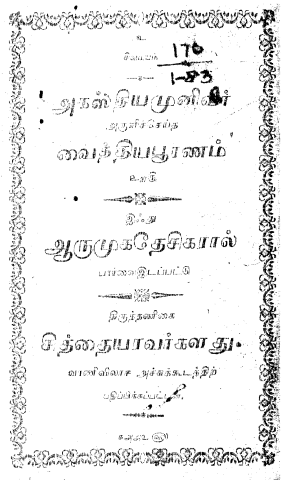 உ
சிவமயம்
176
1-83
அகஸ்தியமுனிவர்
அருளிச்செய்த
வைத்தியபூரணம்
உ௱௫
இஃது
ஆருமுகதேசிகரால்
பார்வைஇடப்பட்டு
திருத்தணிகை
சித்தையாவர்களது
வாணிவிலாச அச்சுக்கூடத்திற்
பதிப்பிக்கப்பட்டது.